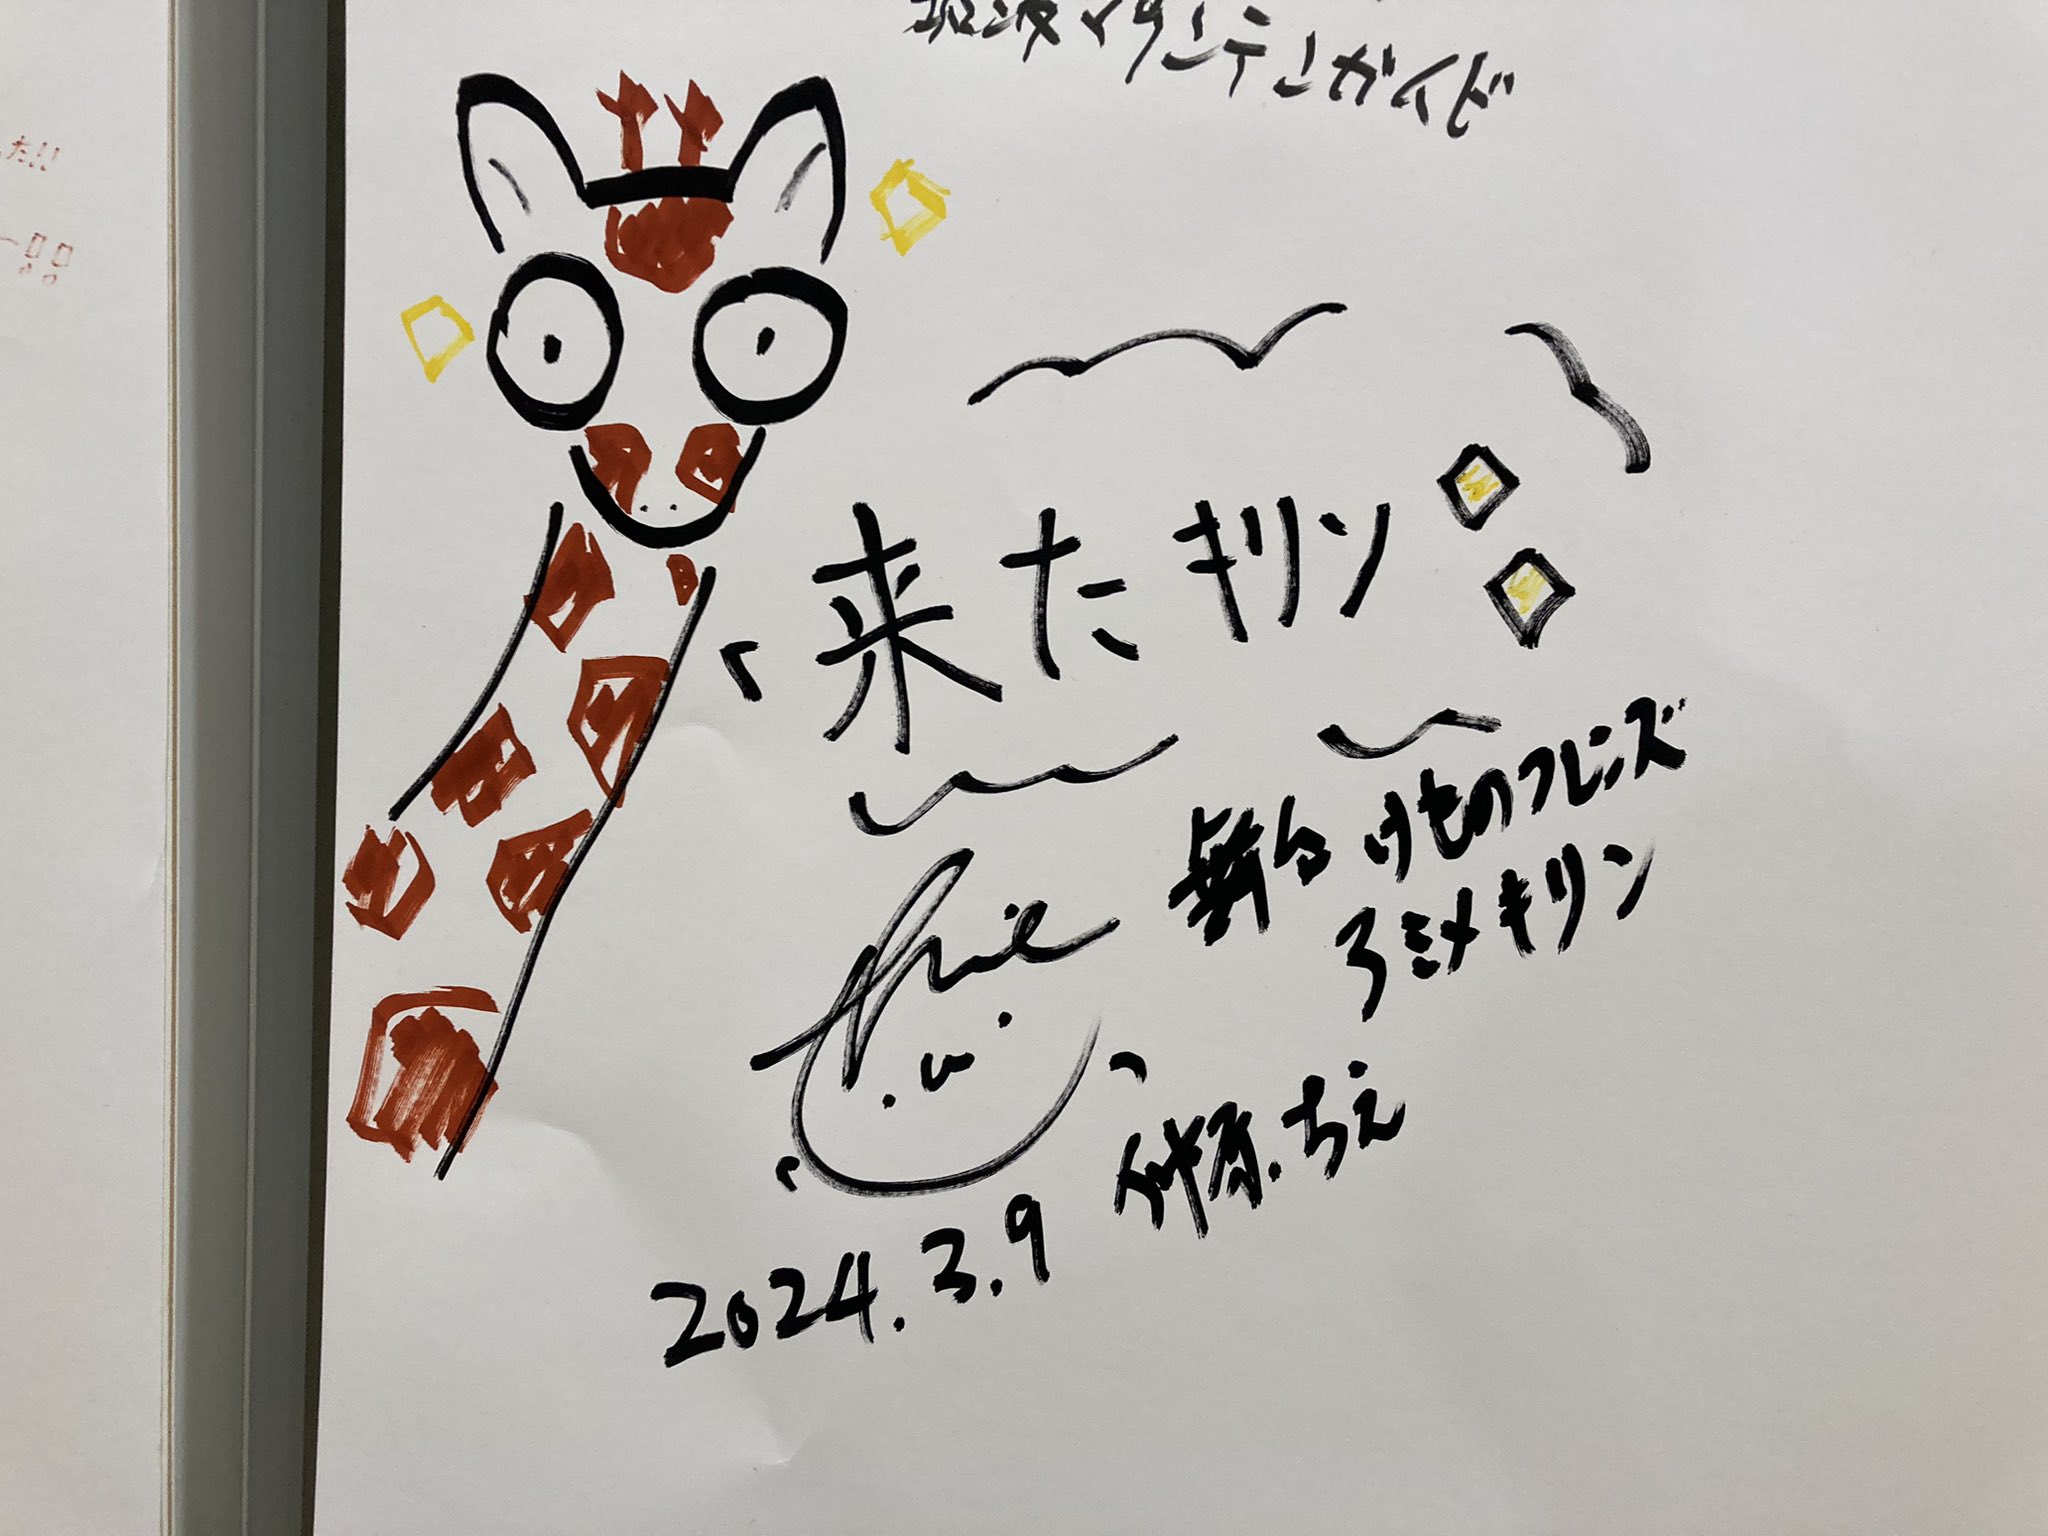 マウンテンガイド
た!!
ー!!
来たキリン
舞台 けものフレンズ
アミメキリン
Chie
仲原.ちえ
2024.3.9